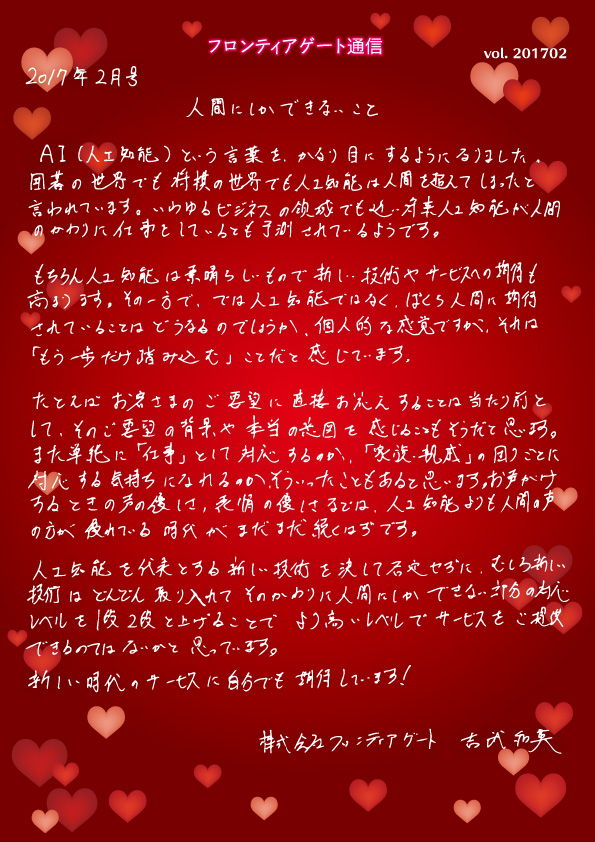 フロンティアゲート通信
vol. 201702
2017年2月号
人間にしかできないこと
AI(人工知能)という言葉を、かなり目にするようになりました。
囲碁の世界でも将棋の世界でも人工知能は人間を超えてしまったと
言われています。いわゆるビジネスの領域でも近い将来人工知能が人間
のかわりに仕事をしているとも予測されているようです。
もちろん人工知能は素晴らしいもので新しい技術やサービスへの期待も
高まります。その一方で、では人工知能ではなく、ぼくら人間に期待
されていることはどうなるのでしょうか、個人的な感覚ですが、それは
「もう一歩だけ踏み込む」ことだと感じています。
たとえばお客さまのご要望に直接お応えすることは当たり前と
して、そのご要望の背景や本当の意図を感じることもそうだと思います。
また単純に「仕事」として対応するのか、「家族・親戚」の困りごとに
対応する気持ちになれるのか、そういったこともあると思います。お声がけ
するときの声の優しさ、表情の優しさなどは、人工知能よりも人間の声
の方が優れている時代がまだまだ続くはずです。
人工知能を代表とする新しい技術を決して否定せずに、むしろ新しい
技術はどんどん取り入れてそのかわりに人間にしかできない部分の対応
レベルを1段2段と上げることでより高いレベルでサービスをご提供
できるのではないかと思っています。
新しい時代のサービスに自分でも期待しています!
株式会社フロンティアゲート 吉武和英